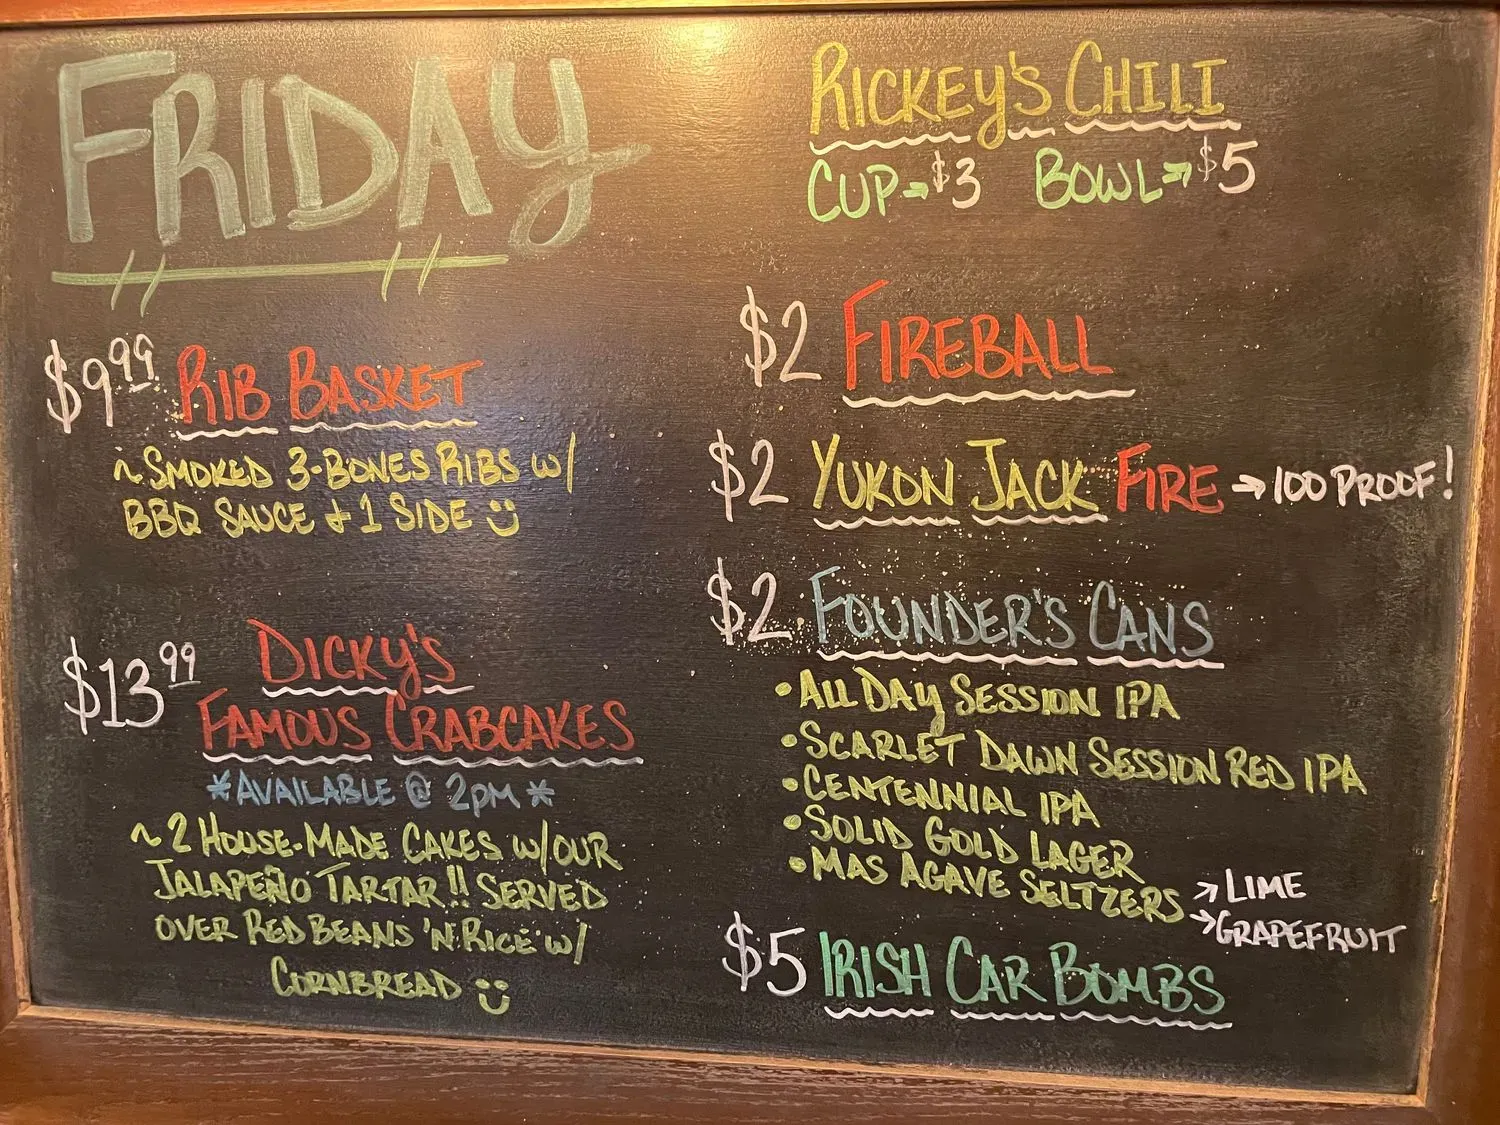 FRIDAY
$9.99 RIB BASKET
~SMOKED 3-BONES RIBS W/
BBQ SAUCE & 1 SIDE
$13.99 DICKY'S
FAMOUS CRABCAKES
*AVAILABLE @ 2PM*
~2 HOUSE-MADE CAKES W/OUR
JALAPEÑO TARTAR!! SERVED
OVER RED BEANS 'N' RICE W/
CORNBREAD
RICKEY'S CHILI
CUP→$3 BOWL→$5
$2 FIREBALL
$2 YUKON JACK FIRE →100 PROOF!
$2 FOUNDER'S CANS
•ALL DAY SESSION IPA
•SCARLET DAWN SESSION RED IPA
•CENTENNIAL IPA
•SOLID GOLD LAGER
•MAS AGAVE SELTZERS →LIME
→GRAPEFRUIT
$5 IRISH CAR BOMBS